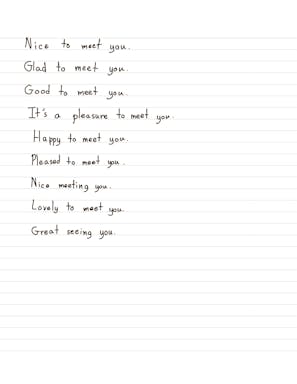 Nice to meet you.
Glad to meet you.
Good to meet you.
It's a pleasure to meet you.
Happy to meet you.
Pleased to meet you.
Nice meeting you.
Lovely to meet you.
Great seeing you.